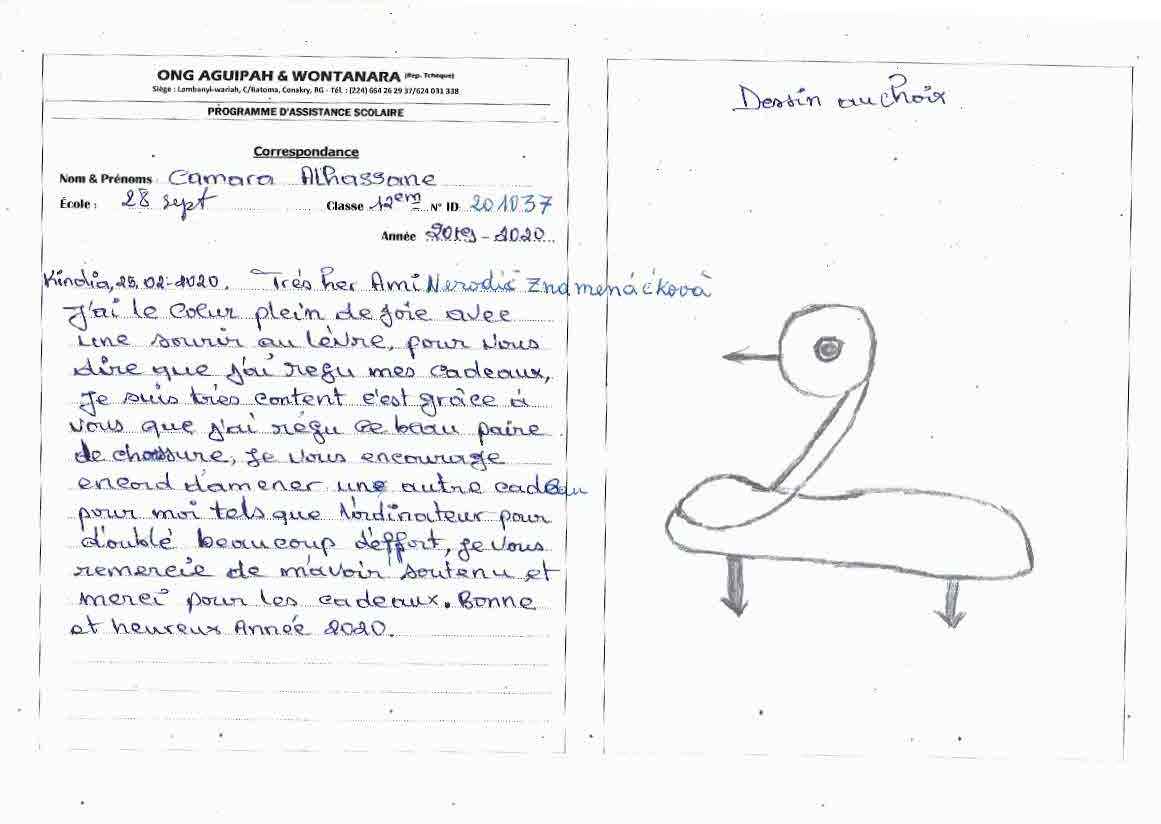 ONG AGUIPAH & WONTANARA (Rép. Tchèque)
Siège : Lambanyi-wariah, C/Ratoma, Conakry, RG - Tél. : (224) 664 26 29 37/624 031 338
PROGRAMME D'ASSISTANCE SCOLAIRE
Correspondance
Nom & Prénoms Camara Alhassane
École : 28 sept Classe 12em N° ID 201037
Année 2019 - 2020
Kindia, 25.02.2020. Très her Ami Nerodič Zndmenáčková
J'ai le Coeur plein de joie avec
une sourir au lèvre, pour vous
dire que j'ai reçu mes cadeaux,
Je suis très content c'est grâce à
vous que j'ai réçu ce beau paire
de chassure, je vous encourage
encord d'amener une autre cadeau
pour moi tels que l'ordinateur pour
doublé beaucoup d'effort, je vous
remercie de mavoir soutenu et
merci pour les cadeaux. Bonne
et heureux Année 2020.
Dessin au choix